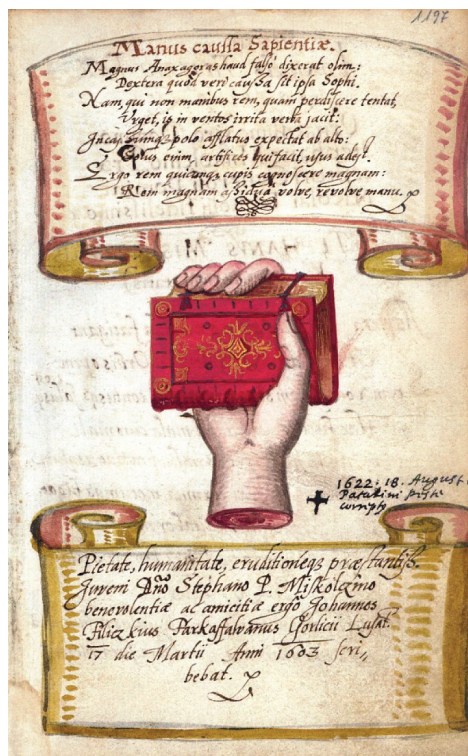 1197
Manus caussa Sapientiæ.
Magnus Anaxagoras haud falso dixerat olim:
Dextera quod veri caussa sit ipsa Sophi.
Nam, qui non manibus rem, quam perdiscere tentat,
Vrget, is in ventos irrita verba jacit:
polo afflatus expectat ab alto:
enim, artifices qui facit, usus adest.
Ergo rem quicunq cupis cognoscere magnam:
Rem magnam assidua volve, revolve manu.
1622: 18. August
Patakini peste
correpty
Pietate, humanitate, eruditioneq præstantiss.
Juveni Dño Stephano P. Miskolczino
benevolentiæ ac amicitiæ ergo Johannes
Filiczkius Farkaffalvanus Gorlicii Lusat.
17 die Martii Anni 1603 scri„
bebat.